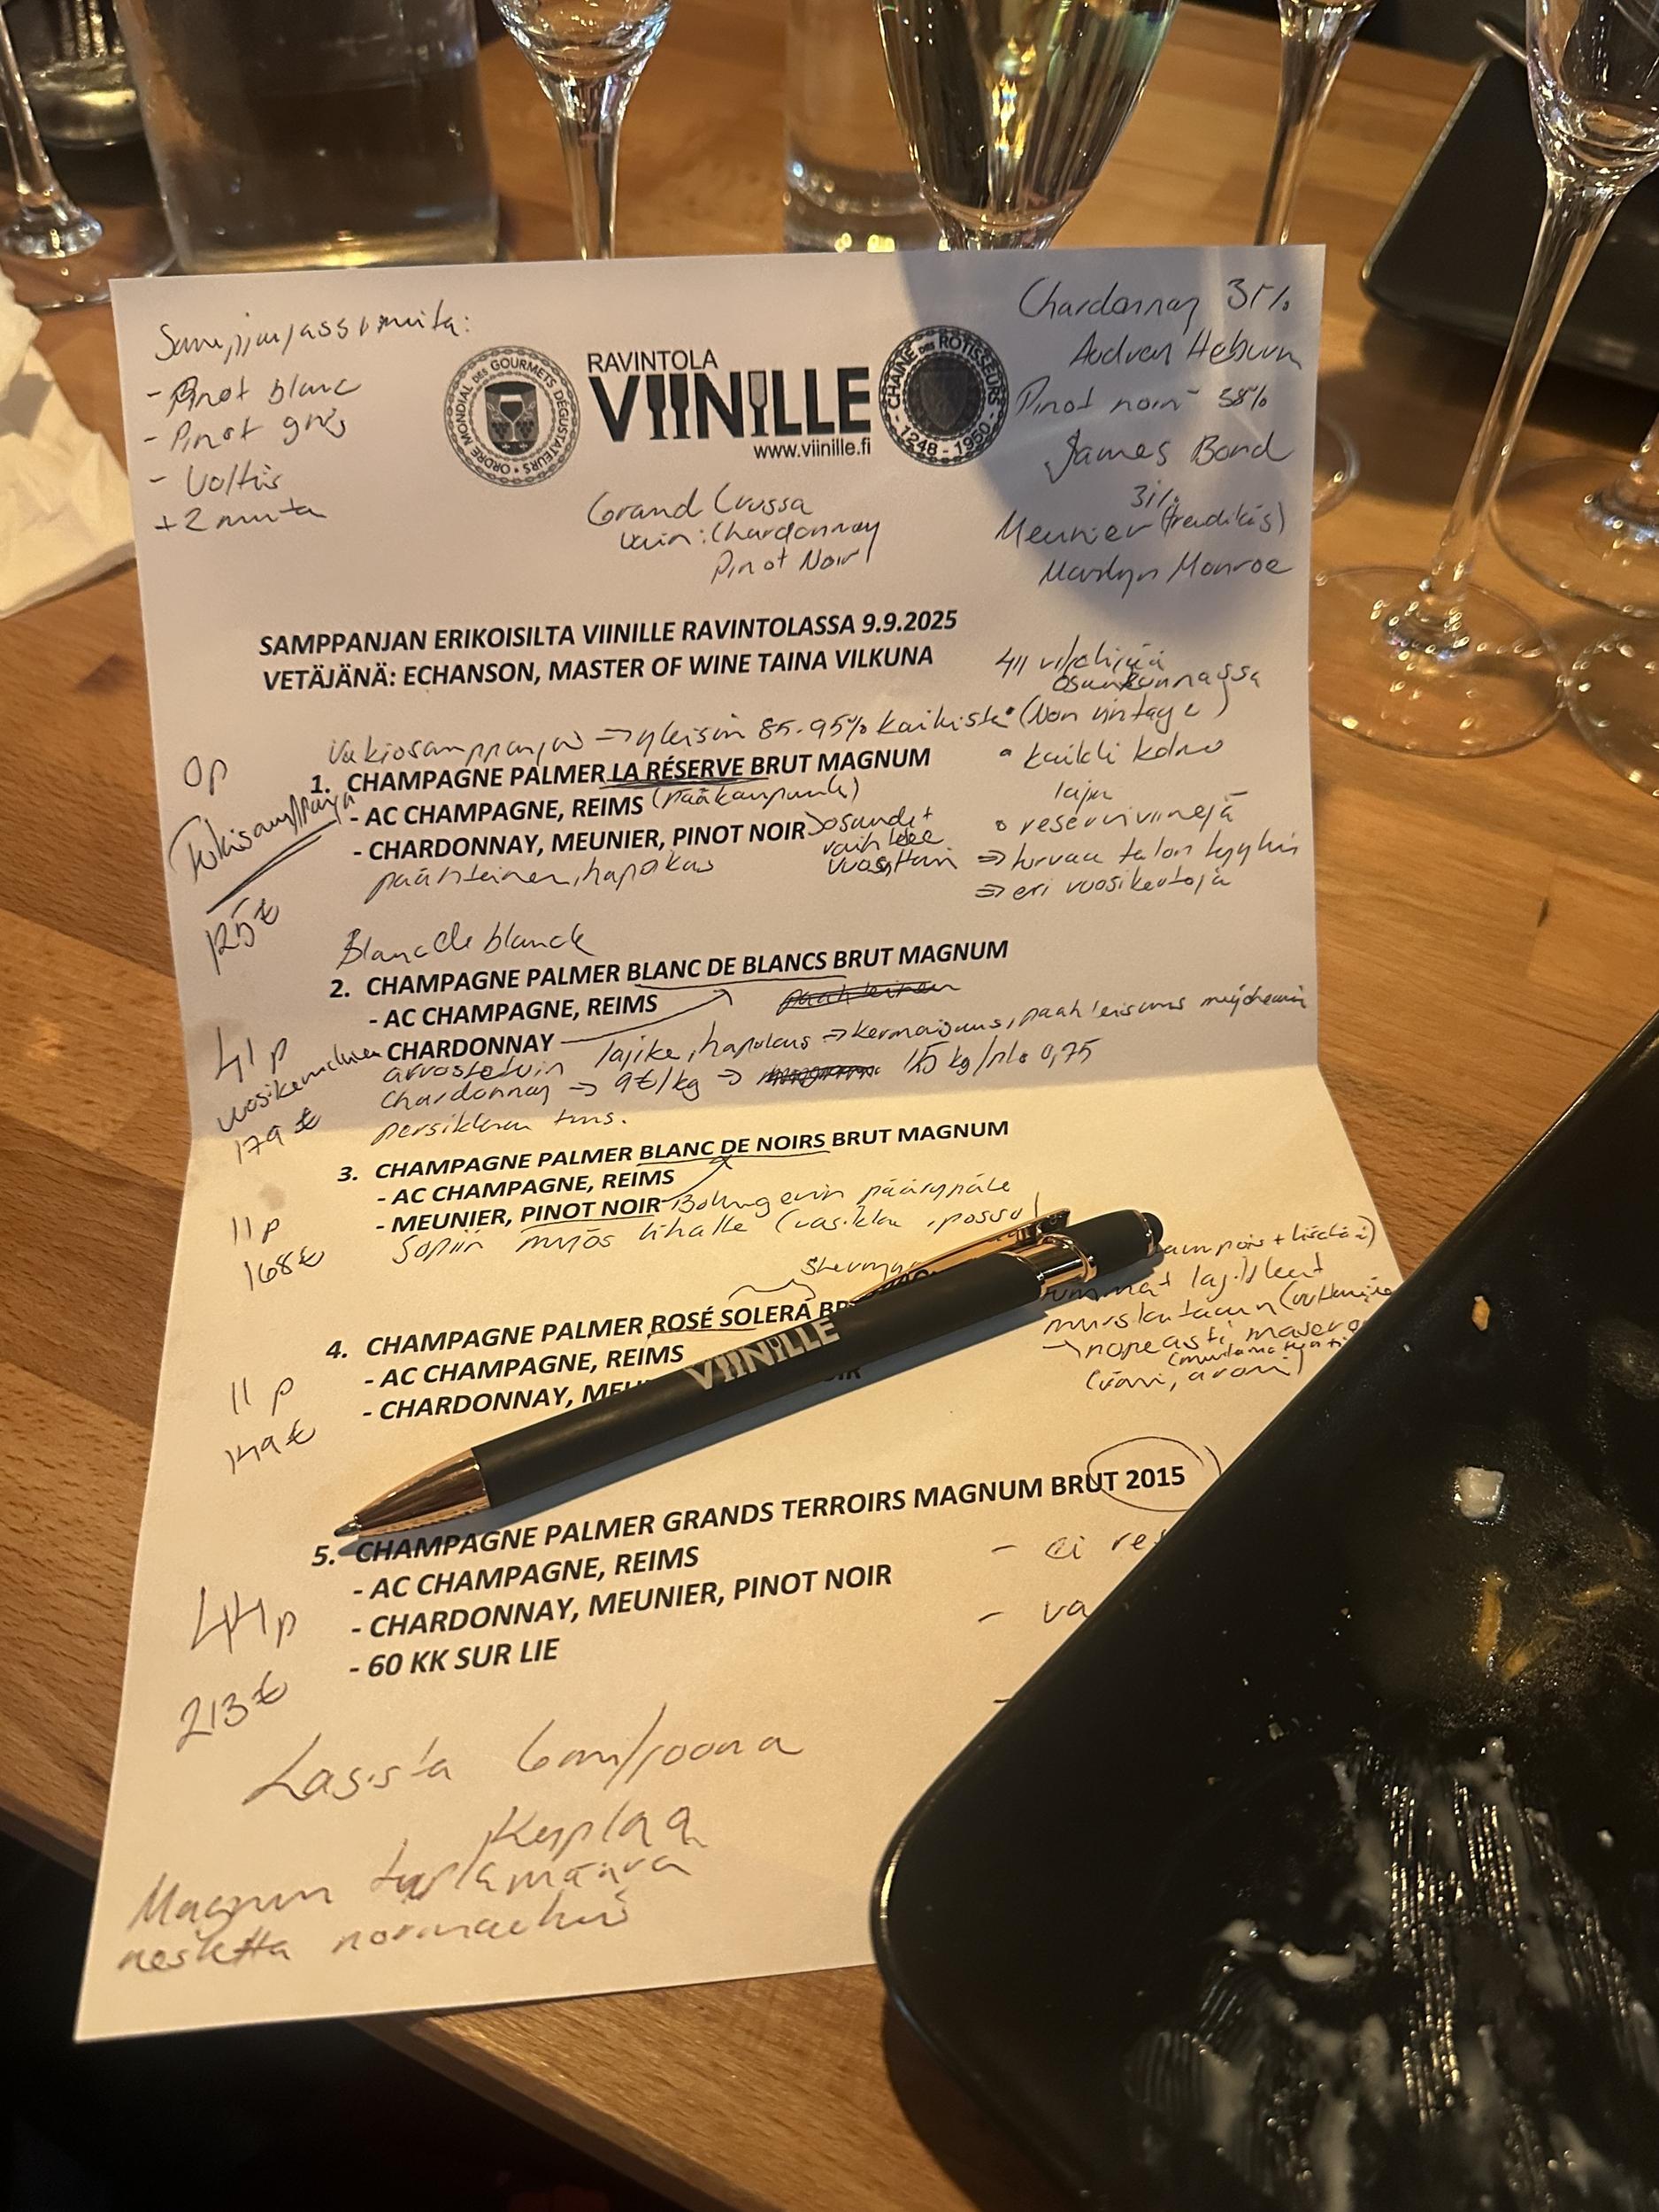 Samppanjassa muita:
- Pinot blanc
- Pinot gris
- Voltis
+2 muita
ORDRE MONDIAL DES GOURMETS DÉGUSTATEURS
RAVINTOLA
VIINILLE
www.viinille.fi
CHAINE DES ROTISSEURS
1248 - 1950
Chardonnay 31%
Audren Heburn
Pinot noir 38%
James Bond
31%
Meunier
Marilyn Monroe
Grand Crussa
vain: Chardonnay
Pinot Noir
SAMPPANJAN ERIKOISILTA VIINILLE RAVINTOLASSA 9.9.2025
VETÄJÄNÄ: ECHANSON, MASTER OF WINE TAINA VILKUNA
411 viljelijää
osuuskunnassa
Vakiosamppanja => yleisin 85-95% kaikista (Non vintage)
0p
1. CHAMPAGNE PALMER LA RÉSERVE BRUT MAGNUM
- AC CHAMPAGNE, REIMS (pääkaupunki)
- CHARDONNAY, MEUNIER, PINOT NOIR
osuudet
vaihtelee
vuosittain
paahteinen, hapokas
125€
• kaikki kolme
lajia
• reserviviinejä
=> turvaa talon tyylin
=> eri vuosikertoja
Blanc de blanck
2. CHAMPAGNE PALMER BLANC DE BLANCS BRUT MAGNUM
- AC CHAMPAGNE, REIMS
CHARDONNAY
41p
179€
arvostetuin lajike, hapokas => kermaisuus, paahteisuus myöhemmin
Chardonnay => 9€/kg => 1,5 kg/plo 0,75
persikkan tms.
3. CHAMPAGNE PALMER BLANC DE NOIRS BRUT MAGNUM
- AC CHAMPAGNE, REIMS
- MEUNIER, PINOT NOIR Bollingerin päärypäle
Sopiin myös lihalle (vasikka, possu)
11p
168€
4. CHAMPAGNE PALMER ROSÉ SOLERA
- AC CHAMPAGNE, REIMS
- CHARDONNAY,
11p
149€
-> nopeasti
VIINILLE
5. CHAMPAGNE PALMER GRANDS TERROIRS MAGNUM BRUT 2015
- AC CHAMPAGNE, REIMS
- CHARDONNAY, MEUNIER, PINOT NOIR
- 60 KK SUR LIE
- ei
44p
213€
Lasista
Kuplaa
Magnum tuplamäärä
nestettä normaaliin